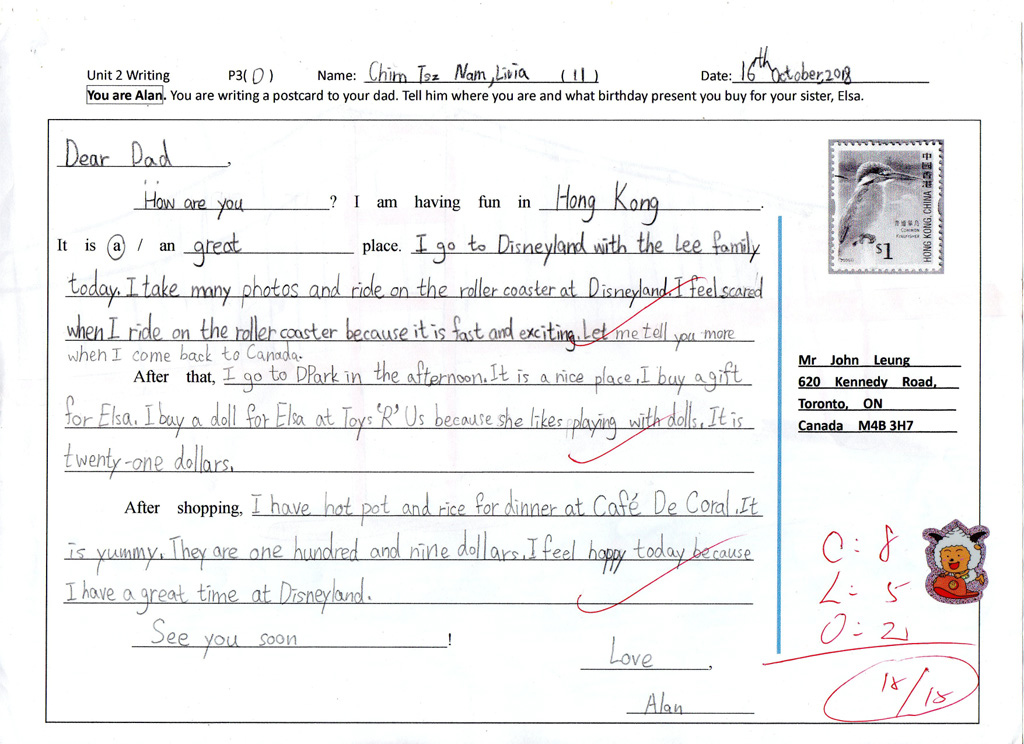 Unit 2 Writing P3(D) Name: Chim Tsz Nam, Livia (11) Date: 16th October, 2018
You are Alan. You are writing a postcard to your dad. Tell him where you are and what birthday present you buy for your sister, Elsa.
Dear Dad,
How are you? I am having fun in Hong Kong.
It is a / an great place. I go to Disneyland with the Lee family
today. I take many photos and ride on the roller coaster at Disneyland. I feel scared
when I ride on the roller coaster because it is fast and exciting. Let me tell you more
when I come back to Canada.
After that, I go to DPark in the afternoon. It is a nice place. I buy a gift
for Elsa. I buy a doll for Elsa at Toys 'R' Us because she likes playing with dolls. It is
twenty-one dollars.
After shopping, I have hot pot and rice for dinner at Café De Coral. It
is yummy. They are one hundred and nine dollars. I feel happy today because
I have a great time at Disneyland.
See you soon!
Love,
Alan
中國香港
HONG KONG, CHINA
香港翠鳥
COMMON
KINGFISHER
$1
Mr John Leung
620 Kennedy Road,
Toronto, ON
Canada M4B 3H7
C: 8
L: 5
O: 2
15/15